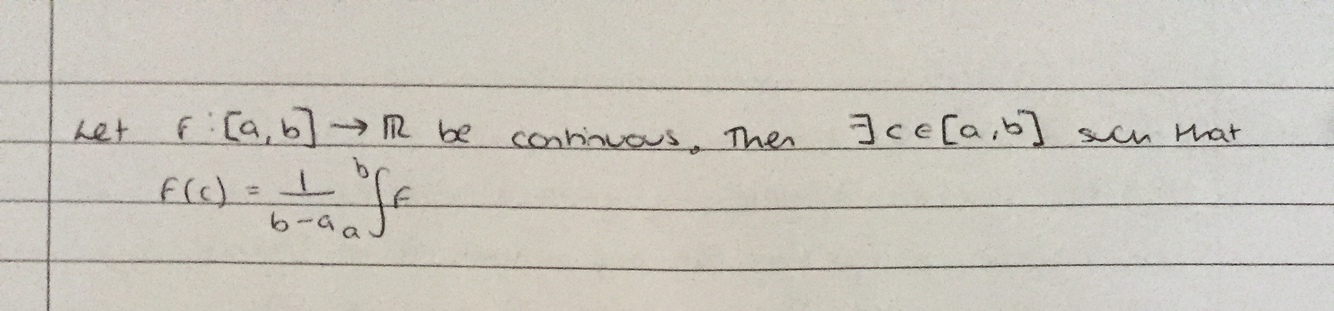 Let f:[a,b] → ℝ be continuous. Then ∃c∈[a,b] such that
f(c) = 1/(b-a) ₐᵇ∫f